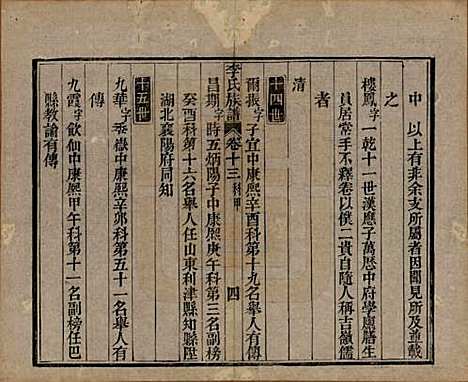 中 以上有非余支所屬者因聞見所及尊載
之
樓鳳字一乾十一世漢應子萬歷中府學廩膳生
員居常手不釋卷以僕二貴自防人稱古嶺儒
者
清
十四世
爾振字子宜中康熙辛酉科第十九名舉人有傳
李氏族譜 卷十三 科甲 四
昌期字時五炳陽子中康熙庚午科第三名副榜
癸酉科第十六名舉人任山東利津縣知縣陞
湖北襄陽府同知
十五世
九華字嶽中康熙辛卯科第五十一名舉人有
傳
九霞字飲仙中康熙甲午科第十一名副榜任巴
縣教諭有傳